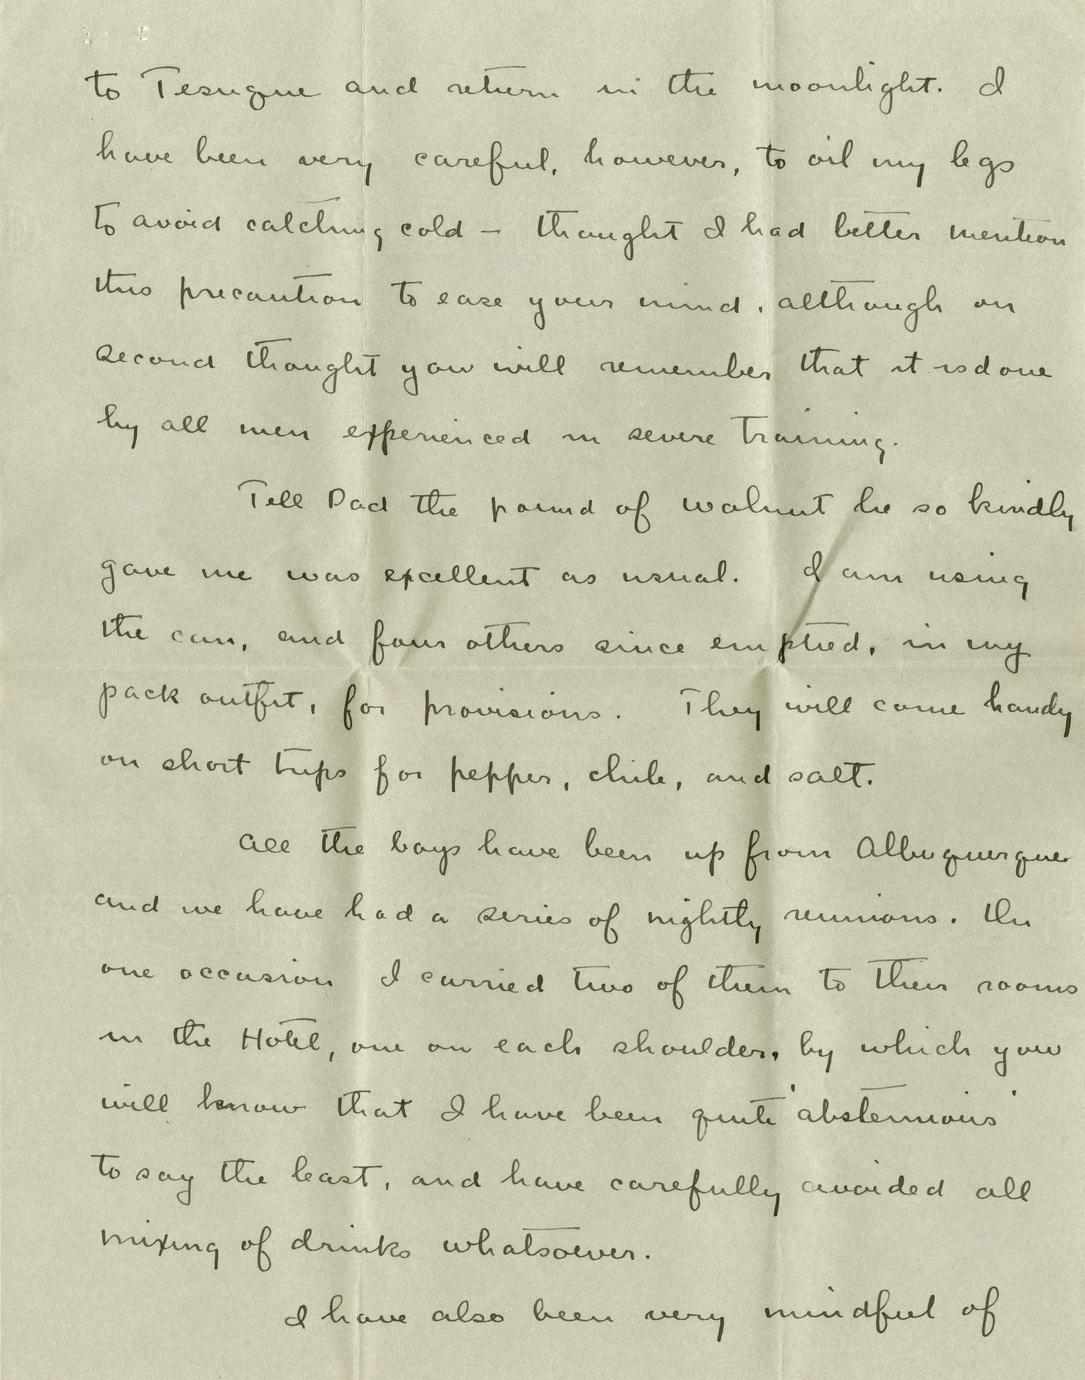 to Tesuque and return in the moonlight. I
have been very careful, however, to oil my legs
to avoid catching cold — thought I had better mention
this precaution to ease your mind, although on
second thought you will remember that it is done
by all men experienced in severe training.
Tell Dad the pound of walnut he so kindly
gave me was excellent as usual. I am using
the can, and four others since emptied, in my
pack outfit, for provisions. They will come handy
on short trips for pepper, chile, and salt.
All the boys have been up from Albuquerque
and we have had a series of nightly reunions. On
one occasion I carried two of them to their rooms
in the Hotel, one on each shoulder, by which you
will know that I have been quite 'abstemious'
to say the least, and have carefully avoided all
mixing of drinks whatsoever.
I have also been very mindful of